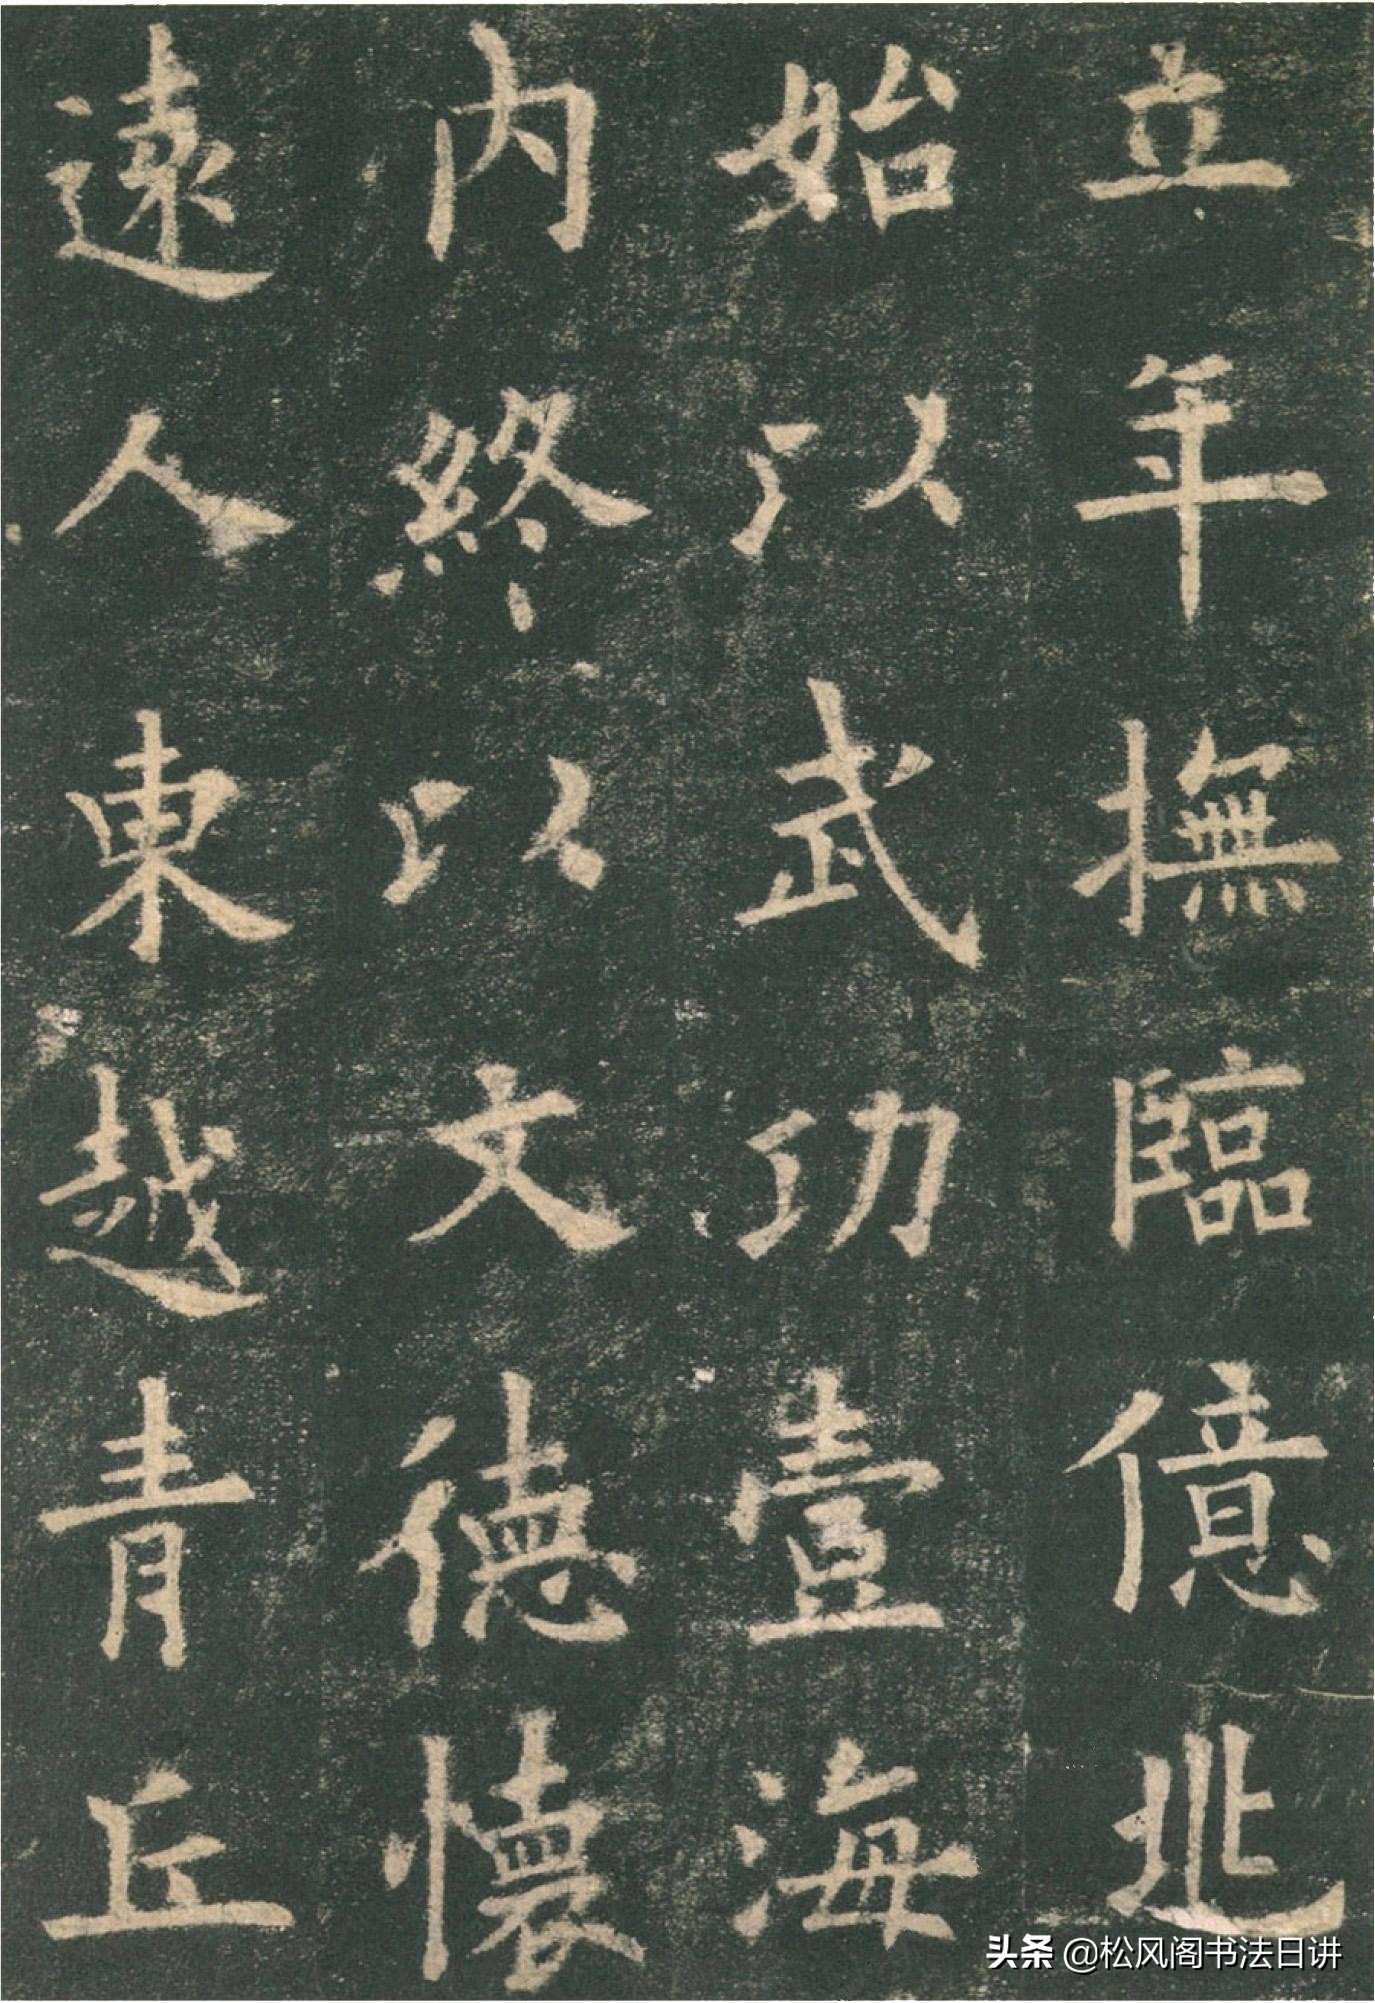 立年撫臨億兆
始以武功壹海
内終以文德懷
遠人東越青丘
头条 @松风阁书法日讲